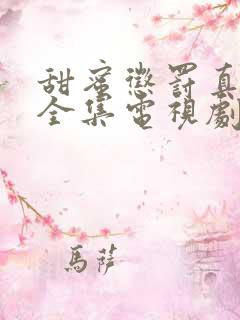 甜蜜懲罰真
全集電視劇
馬薩